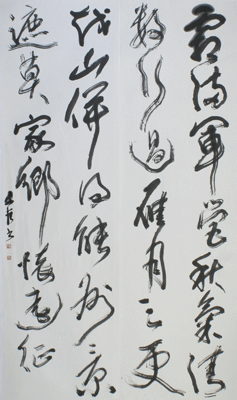 霜満軍營秋氣清
数行過雁月三更
越山併得能州景
遮莫家鄉懷遠征